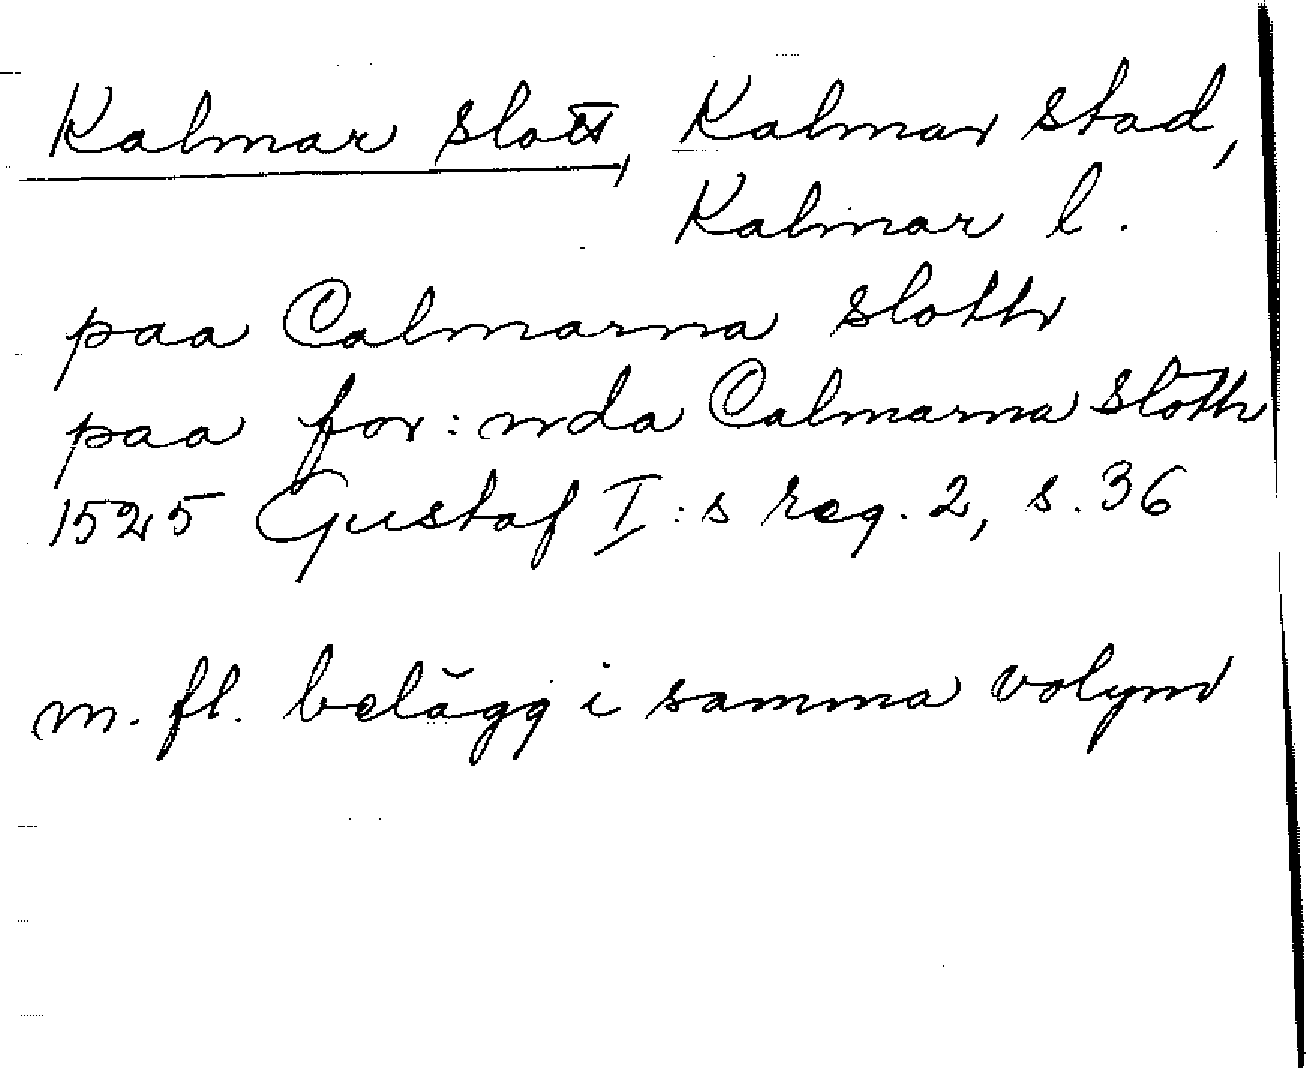 Kalmar slott, Kalmar stad,
Kalmar l.
paa Calmarna slotth
paa for: nda Calmarna slotth
1525 Gustaf I:s reg. 2, s. 36
m. fl. belägg i samma volym